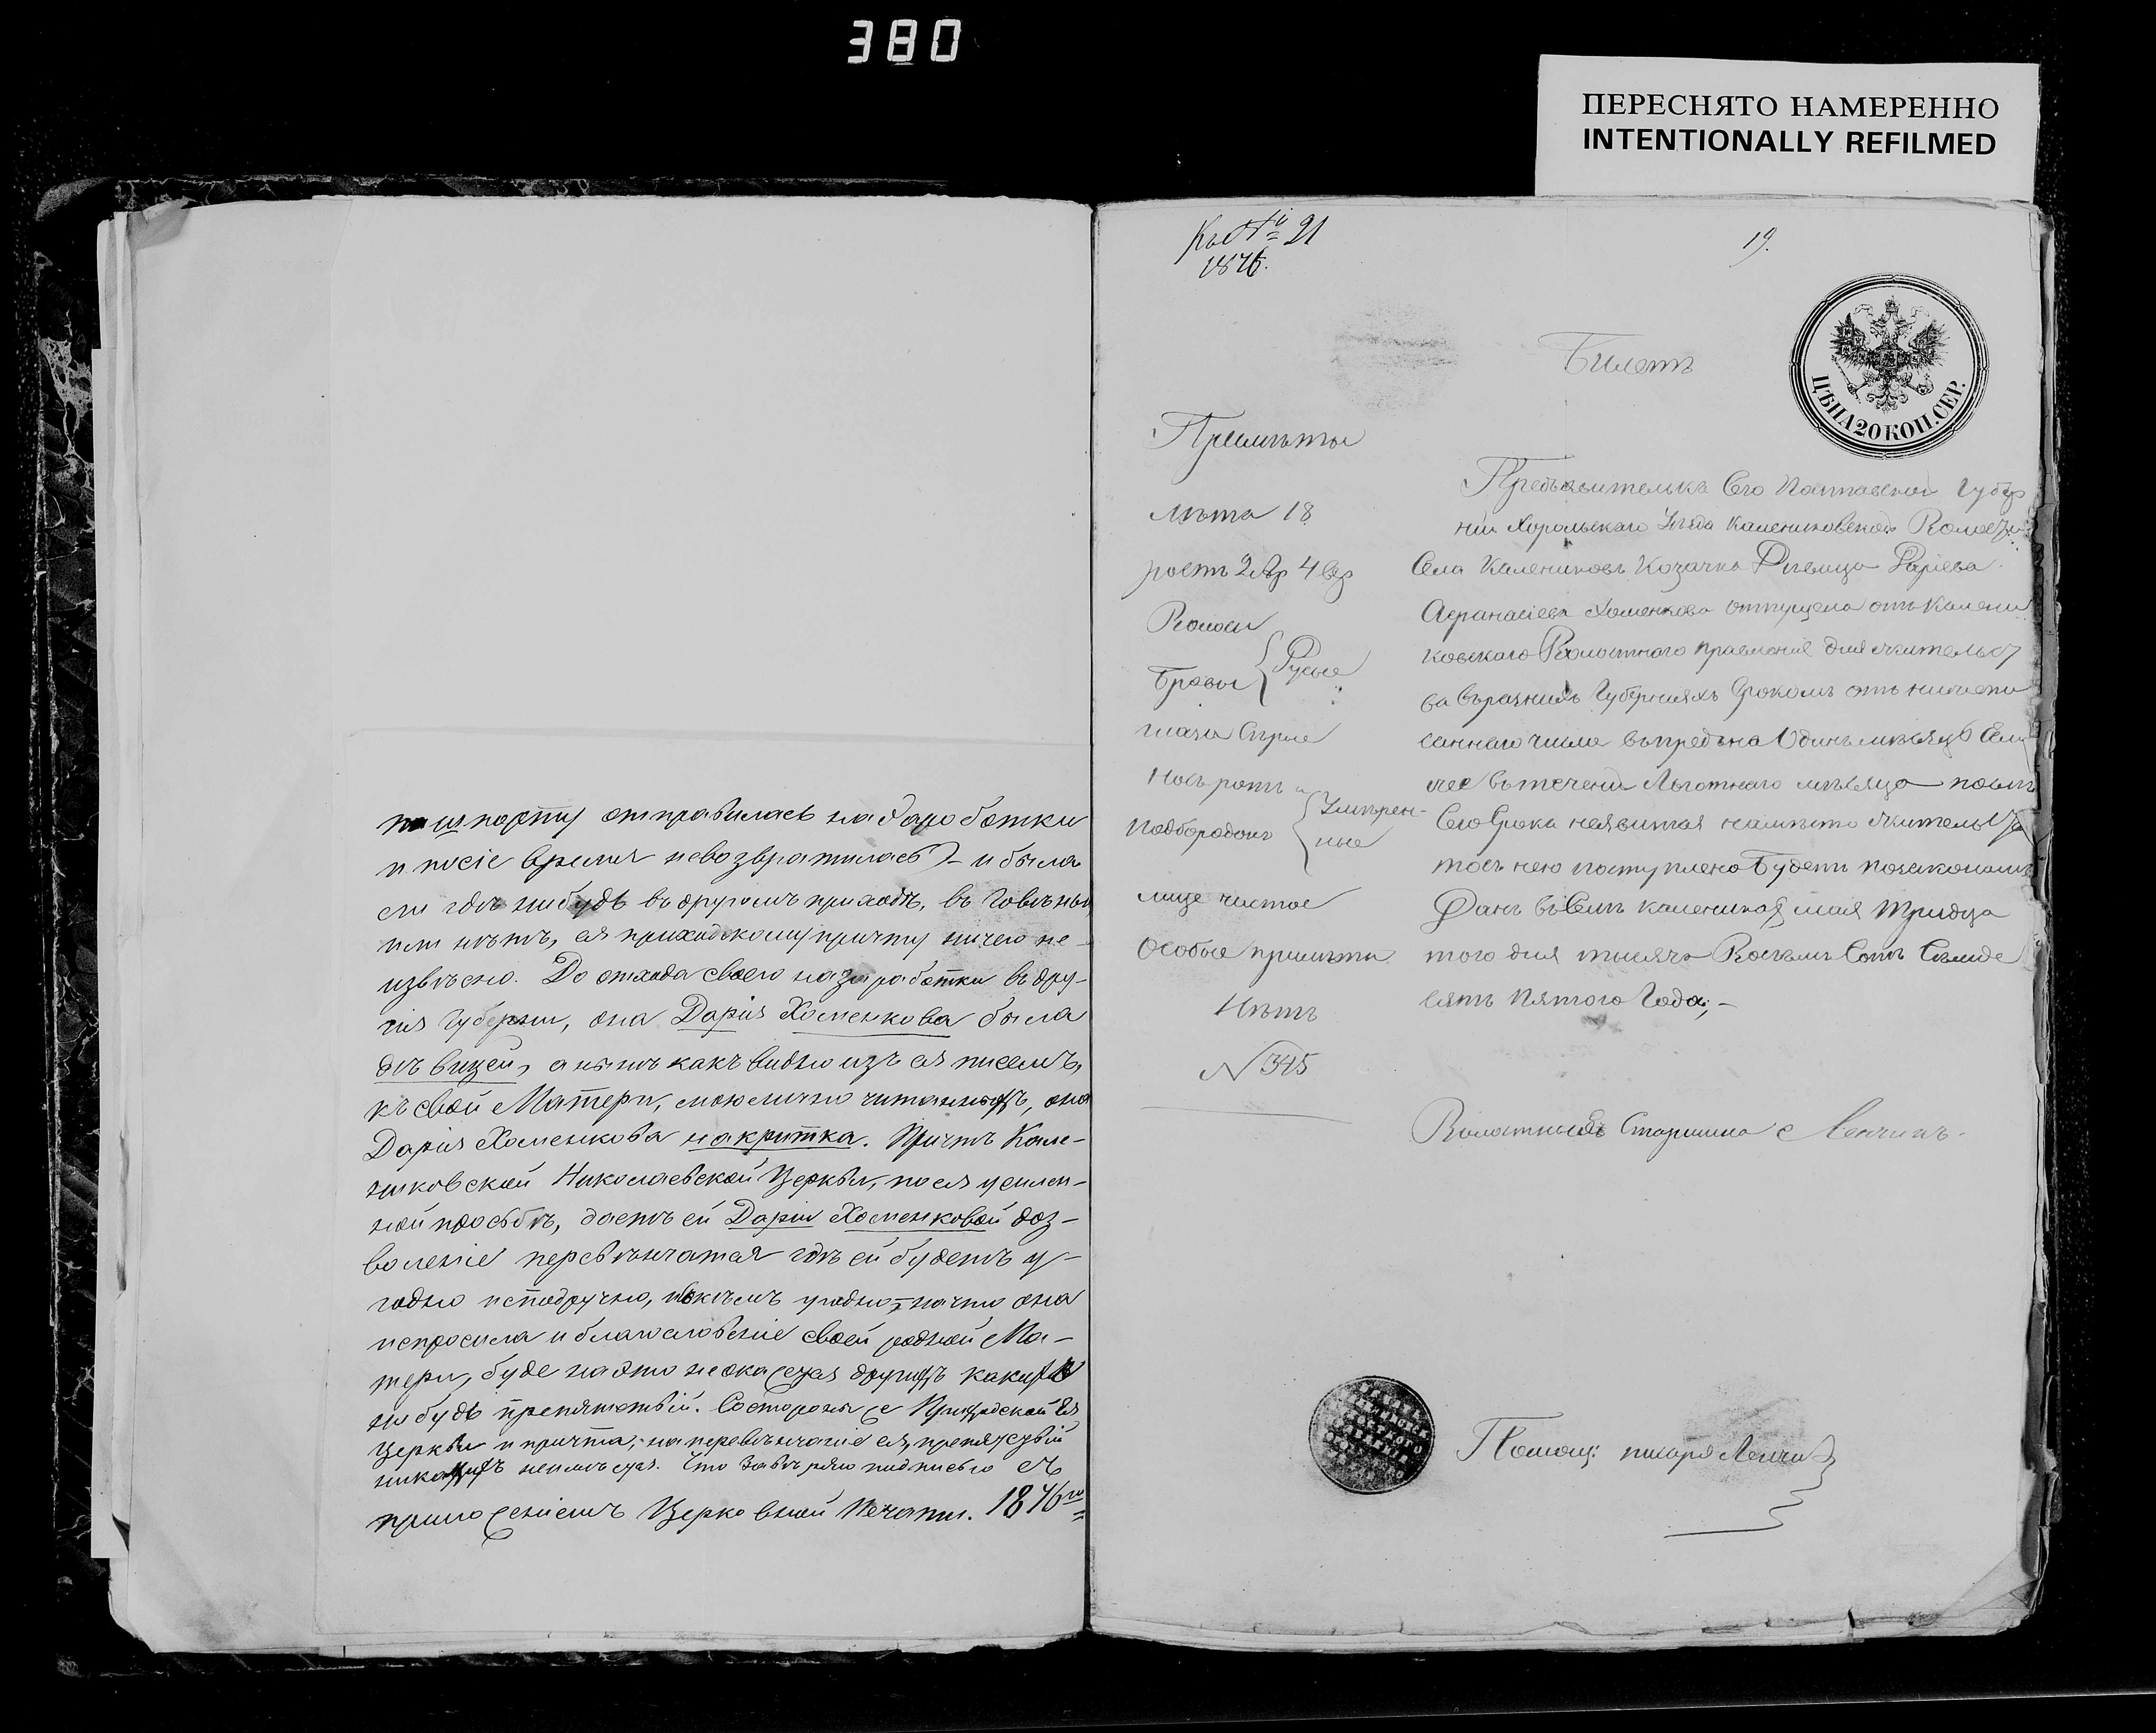 380
ПЕРЕСНЯТО НАМЕРЕННО
INTENTIONALLY REFILMED
пашпорту отправилась на заработки
и посіе время невозвратилась, – и была
ли гдѣ нибудь въ другомъ приходѣ, въ Говѣньи
или нѣтъ, ея приходскому причту ничего не-
извѣсно. До отхода своего на заработки въ дру-
гія Губерніи, она Дарія Хоменкова была
дѣвицей, а нынѣ какъ видно изъ ея писемъ,
къ свой Матери, мною лично читанныхъ, она
Дарія Хоменкова накритка. Причтъ Кале-
никовской Николаевской Церкви, посля усилен-
ной просьбѣ, даетъ ей Даріи Хоменковой доз-
воленіе перевѣнчатся гдѣ ей будетъ у-
годно и сподручно, и съ кѣмъ угодно, – на что она
испросила и благословѣніе своей родной Ма-
тери, буде на это не окажется другихъ какихъ
нибудь препятствій. Со стороны же Приходской Ея
Церкви и причта, на перевѣнчаніе ея, препятствій
никакихъ неимѣется. Что завѣряю подписью съ
приложеніемъ Церковной Печати. 1876го
Къ № 21
1876.
19.
Билетъ
ЦѢНА 20 КОП. СЕР.
Примѣты
Лѣта 18
ростъ 2 Ар 4 вер
Волосы
Брови { Русые
глаза Сѣрые
Носъ ротъ и
подбородокъ { Умѣрен-
ные
лице чистое
Особые примѣты
Нѣтъ
№ 345
Предъявителька Сего Полтавской Губер
ніи Хорольскаго Уѣзда Калениковской Волости
Села Калениковъ Козачка Дѣвица Дарiева
Афанасіева Хоменкова отпущена отъ Калени
ковскаго Волостного правленія для жительст
ва въ разныхъ Губерніяхъ Срокомъ отъ нижепи
саннаго числа впредъ на Одинъ мѣсяцъ Ежели
же въ теченіи Льготнаго мѣсяца послѣ
Сего Срока неявится намѣсто жительства
то съ нею поступлено Будетъ позаконамъ
Данъ въ Селѣ Каленикахъ мая тридца
того дня тысяча Восемъ Сотъ Семьде
сятъ Пятого Года;
Волостной Старшина Ленчикъ
Помощ: писаря Ленчи